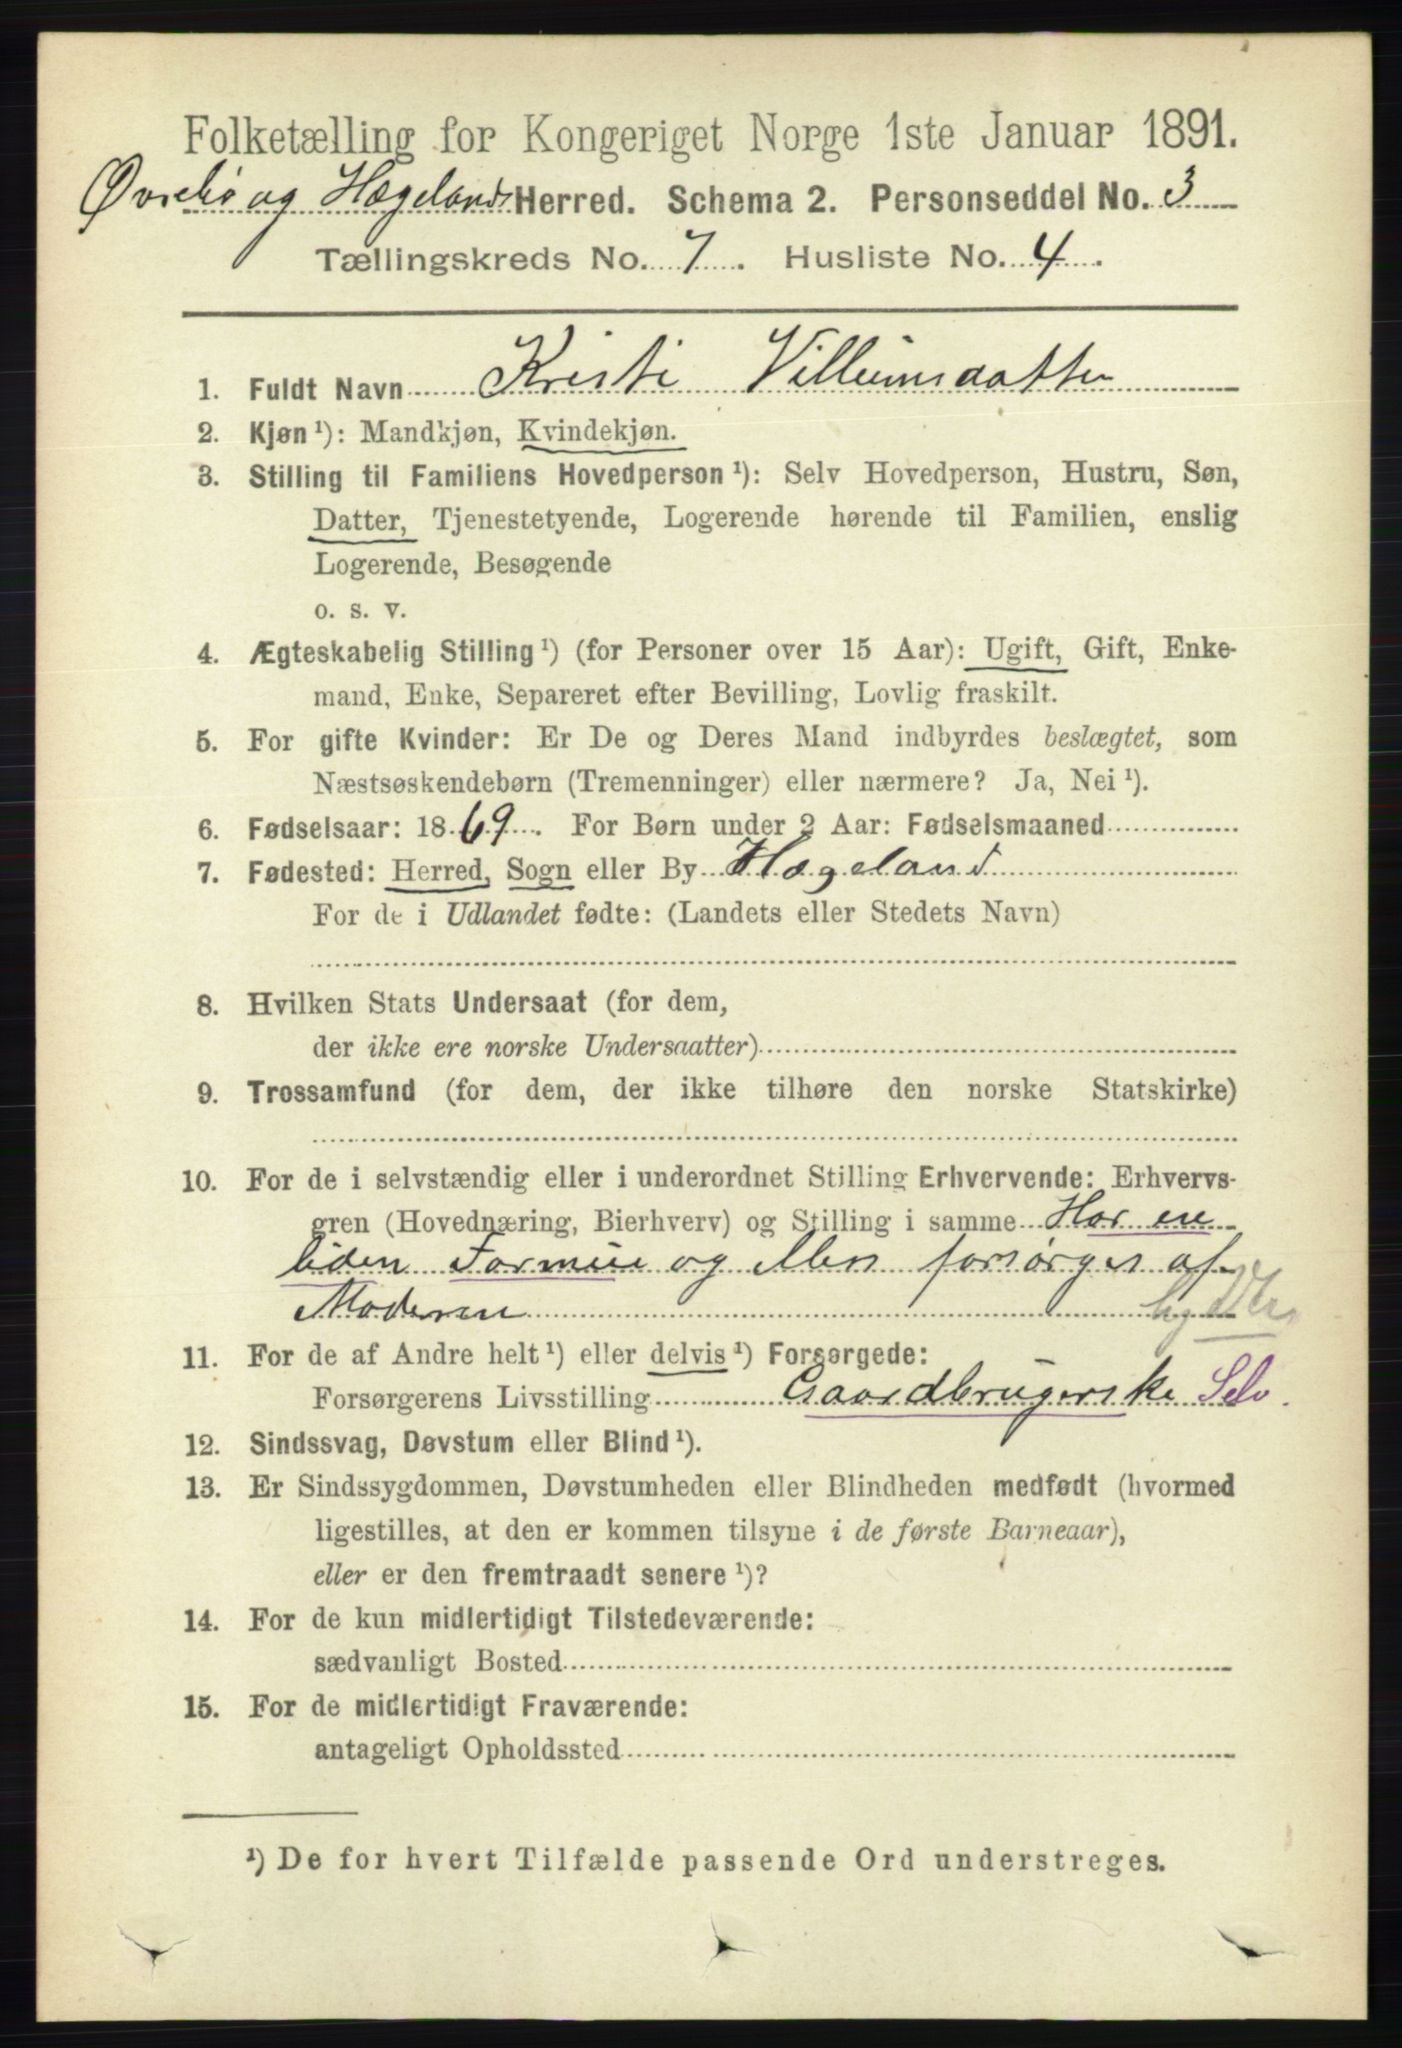 Folketælling for Kongeriget Norge 1ste Januar 1891.
Øvrebø og Hægelands Herred. Schema 2. Personseddel No. 3
Tællingskreds No. 7. Husliste No. 4.
1. Fuldt Navn Kristi Villumsdatter
2. Kjøn ¹): Mandkjøn, Kvindekjøn.
3. Stilling til Familiens Hovedperson ¹): Selv Hovedperson, Hustru, Søn,
Datter, Tjenestetyende, Logerende hørende til Familien, enslig
Logerende, Besøgende
o. s. v.
4. Ægteskabelig Stilling ¹) (for Personer over 15 Aar): Ugift, Gift, Enke-
mand, Enke, Separeret efter Bevilling, Lovlig fraskilt.
5. For gifte Kvinder: Er De og Deres Mand indbyrdes beslægtet, som
Næstsøskendebørn (Tremenninger) eller nærmere? Ja, Nei ¹).
6. Fødselsaar: 1869. For Børn under 2 Aar: Fødselsmaaned
7. Fødested: Herred, Sogn eller By Hægeland
For de i Udlandet fødte: (Landets eller Stedets Navn)
8. Hvilken Stats Undersaat (for dem,
der ikke ere norske Undersaatter)
9. Trossamfund (for dem, der ikke tilhøre den norske Statskirke)
10. For de i selvstændig eller i underordnet Stilling Erhvervende: Erhvervs-
gren (Hovednæring, Bierhverv) og Stilling i samme Har en
liden Formue og forsørges af
Moderen
11. For de af Andre helt ¹) eller delvis ¹) Forsørgede:
Forsørgerens Livsstilling Gaardbrugerske Selv.
12. Sindssvag, Døvstum eller Blind ¹).
13. Er Sindssygdommen, Døvstumheden eller Blindheden medfødt (hvormed
ligestilles, at den er kommen tilsyne i de første Barneaar),
eller er den fremtraadt senere ¹)?
14. For de kun midlertidigt Tilstedeværende:
sædvanligt Bosted
15. For de midlertidigt Fraværende:
antageligt Opholdssted
¹) De for hvert Tilfælde passende Ord understreges.